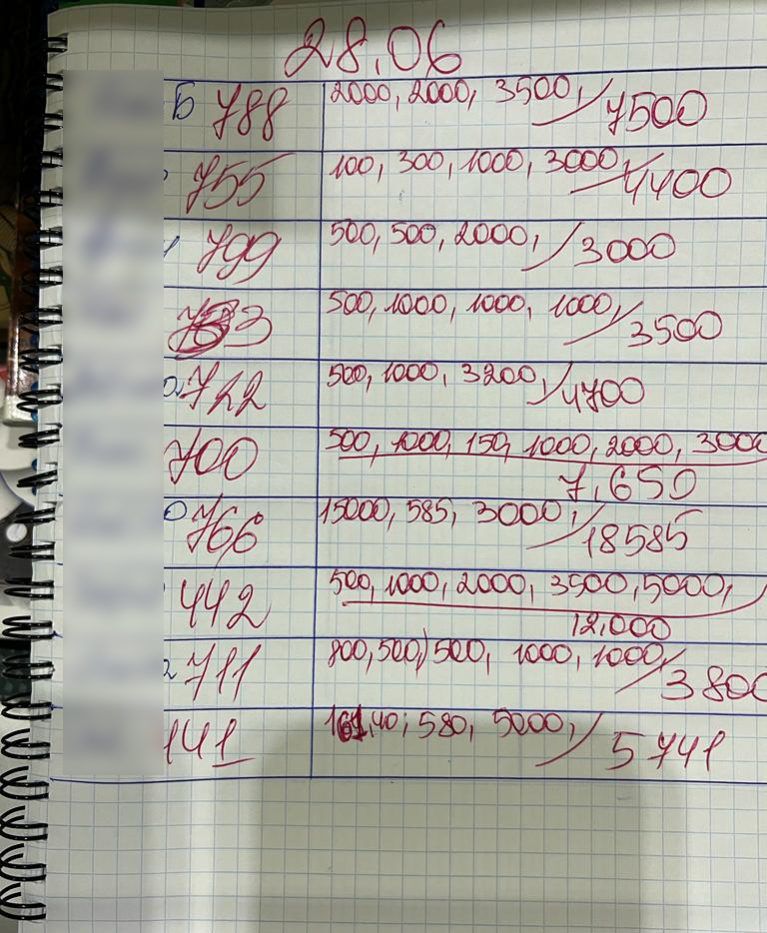 28.06
Б 788 2000, 2000, 3500, / 7500
755 100, 300, 1000, 3000, / 4400
799 500, 500, 2000, / 3000
733 500, 1000, 1000, 1000, / 3500
722 500, 1000, 3200, / 4700
700 500, 1000, 150, 1000, 2000, 3000
7,650
766 15000, 585, 3000, / 18585
442 500, 1000, 2000, 3500, 5000,
12.000
711 800, 500, 500, 1000, 1000, / 3800
141 161,40; 580, 5000, / 5741